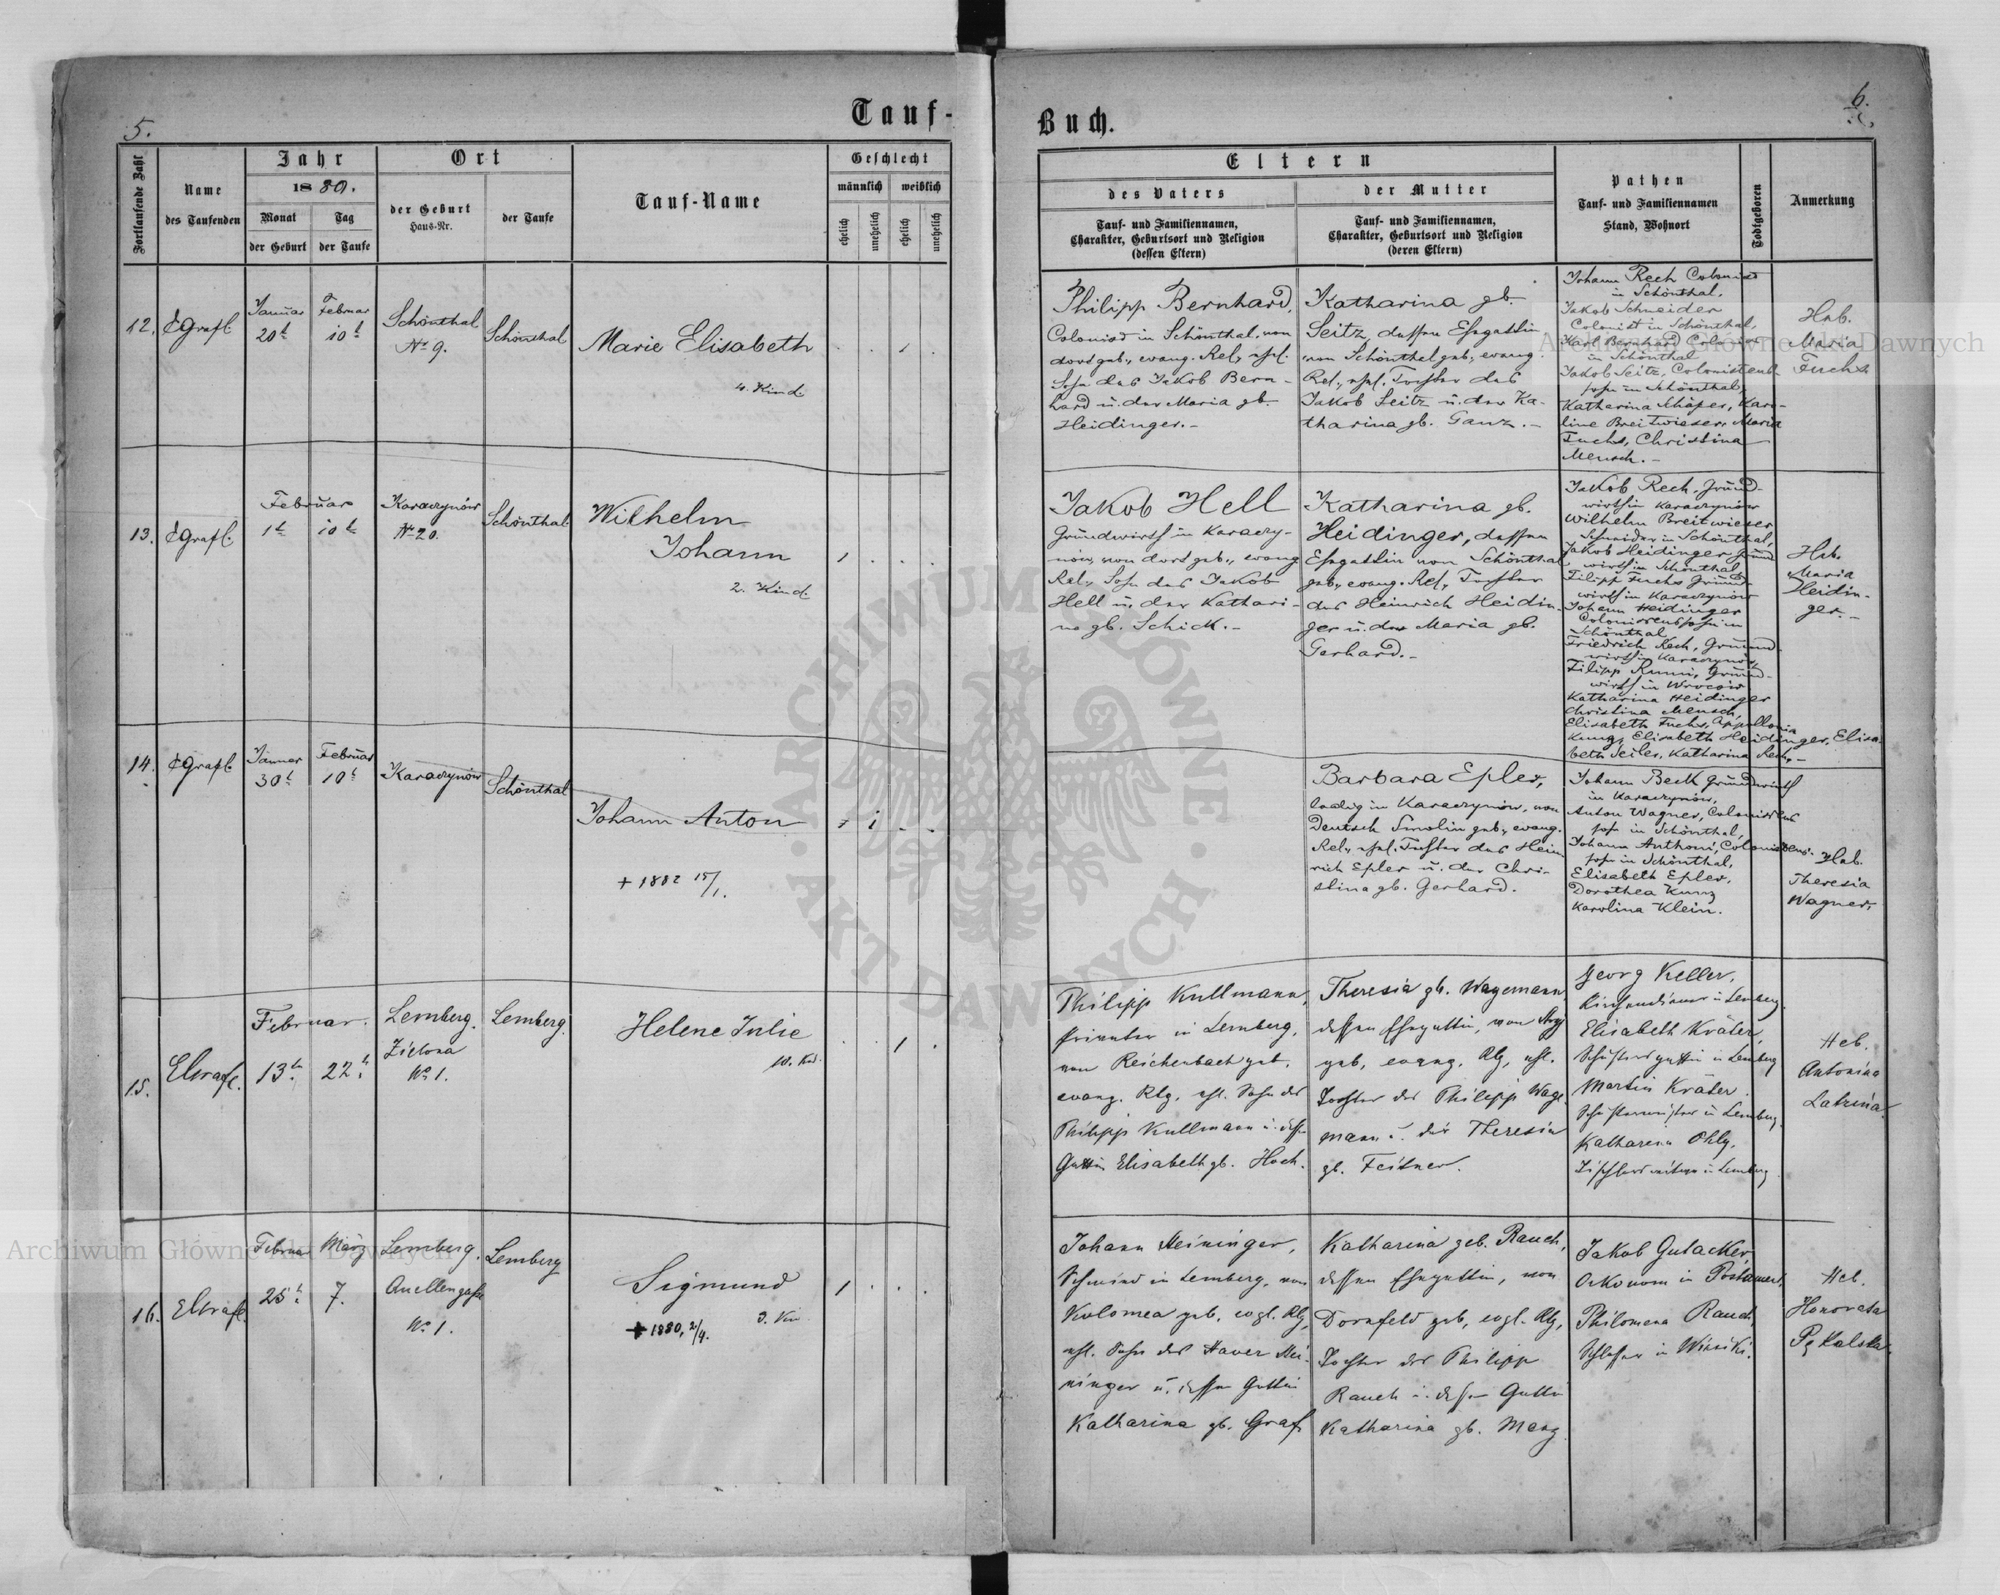 5.
Tauf-
Fortlaufende Zahl
Name
des Taufenden
Jahr
1880.
Monat
der Geburt
Tag
der Taufe
Ort
der Geburt
Haus-Nr.
der Taufe
Tauf-Name
Geschlecht
männlich
weiblich
ehelich
unehelich
ehelich
unehelich
12.
Januar
20t
Februar
10t
Schönthal
No 9.
Schönthal
Marie Elisabeth
4. Kind.
1
13.
Februar
1t
10t
Karaczynów
No 20.
Schönthal
Wilhelm
Johann
2. Kind.
1
14.
Jänner
30t
Februar
10t
Karaczynów
Schönthal
Johann Anton
1
+ 1882 15/1.
15.
Februar.
13t
22t
Lemberg.
Zielona
No 1.
Lemberg.
Helene Julie
10. Kd.
1
16.
Februar
25t
März
7.
Lemberg.
Quellengasse
No 1.
Lemberg
Sigmund
3. Kin
+ 1880, 2/4.
1
Buch.
6.
Eltern
des Vaters
Tauf- und Familiennamen,
Charakter, Geburtsort und Religion
(dessen Eltern)
der Mutter
Tauf- und Familiennamen,
Charakter, Geburtsort und Religion
(deren Eltern)
Pathen
Tauf- und Familiennamen
Stand, Wohnort
Todtgeboren
Anmerkung
Philipp Bernhard,
Colonist in Schönthal, von
dort geb., evang. Rel., ehel.
Sohn des Jakob Bern-
hard u. der Maria gb.
Heidinger.-
Katharina gb.
Seitz, dessen Ehegattin
von Schönthal geb., evang.
Rel., ehel. Tochter des
Jakob Seitz u. der Ka-
tharina gb. Ganz.-
Johann Rech Colonist
in Schönthal,
Jakob Schneider
Colonist in Schönthal,
Karl Bernhard Colonist
in Schönthal
Jakob Seitz, Colonistens
sohn in Schönthal,
Katharina Schäfer, Karo-
line Breitwieser, Maria
Fuchs, Christina
Mensch.-
Heb.
Maria
Fuchs
Jakob Hell
Grundwirth in Karaczy-
nów, von dort geb., evang
Rel., Sohn des Jakob
Hell u. der Kathari-
na gb. Schick.-
Katharina gb.
Heidinger, dessen
Ehegattin von Schönthal
geb., evang. Rel., Tochter
des Heinrich Heidin-
ger u. der Maria gb.
Gerhard.-
Jakob Rech, Grund-
wirth in Karaczynów
Wilhelm Breitwieser
Schneider in Schönthal,
Jakob Heidinger Grund
wirth in Schönthal
Filipp Fuchs Grund-
wirth in Karaczynów
Johann Heidinger
Colonistensohn in
Schönthal
Friedrich Rech, Grund-
wirth in Karaczynów,
Filipp Grund-
wirth in
Katharina Heidinger
Christina Mensch
Elisabeth Fuchs, Appollonia
Kunz, Elisabeth Heidinger, Elisa-
beth Seiler, Katharina Rech.-
Heb.
Maria
Heidin-
ger.-
Barbara Epler,
ledig in Karaczynów, von
Deutsch Smolin geb., evang.
Rel., ehel. Tochter des Hein
rich Epler u. der Chri-
stina gb. Gerhard.
Johann Beck Grundwirth
in Karaczynów,
Anton Wagner, Colonistens
sohn in Schönthal,
Johann Anthoni, Colonistens-
sohn in Schönthal,
Elisabeth Epler,
Dorothea Kunz
Karolina Klein.
Heb.
Theresia
Wagner,
Philipp Kullmann,
Privater in Lemberg,
von Reichenbach geb.
evang. Rlg, ehl. Sohn des
Philipp Kullmann u. dessen
Gattin Elisabeth gb. Hoch.
Theresia gb. Wagemann,
dessen Ehegattin, von Stryj
geb, evang. Rlg, ehl.
Tochter des Philipp Wage
mann u. der Theresia
gb. Feitner.
Georg Keller,
Kirchendiener in Lemberg
Elisabeth Kräter,
Schustersgattin in Lemberg
Martin Kräter
Schustermeister in Lemberg
Katharina Ohly,
in Lemberg
Heb.
Antonina
Latrina.
Johann Meininger,
Schmied in Lemberg, von
Kolomea geb, evgl. Rlg,
ehl. Sohn des Xaver Mei-
ninger u. dessen Gattin
Katharina gb. Graf
Katharina geb. Rauch,
dessen Ehegattin, von
Dornfeld geb, evgl. Rlg,
Tochter des Philipp
Rauch u. dessen Gattin
Katharina gb. Manz
Jakob Gutacker,
Oekonom in
Philomena Rauch,
Schlosser in Winniki.
Heb.
Honorata
Pękalska
Archiwum Główne Akt Dawnych
Archiwum Główne Akt Dawnych
ARCHIWUM GŁÓWNE
AKT DAWNYCH